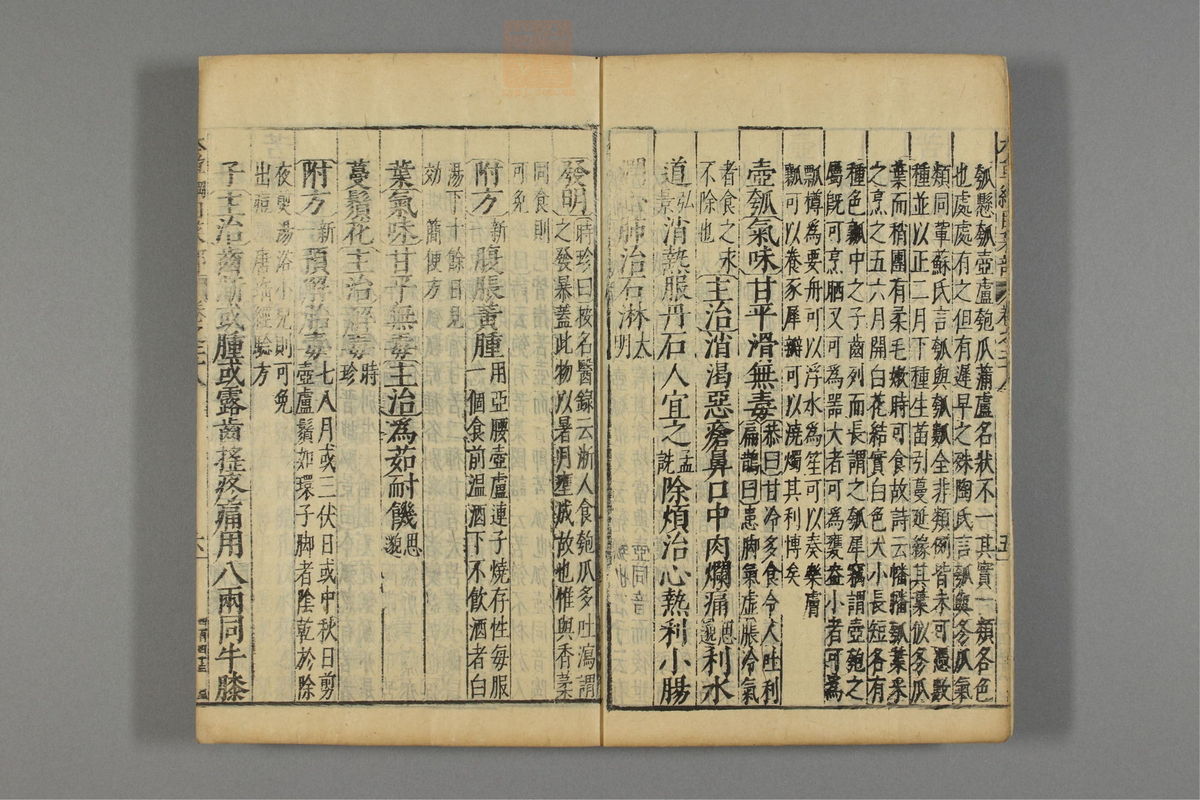 瓠懸瓠壺盧匏瓜蒲盧名狀不一其實一類各色
也處處有之但有遲早之殊陶氏言瓠與冬瓜氣
類同軰蘇氏言瓠與瓠瓤全非類例皆未可憑數
種並以正二月下種生苗引蔓延緣其葉似冬瓜
葉而稍團有柔毛嫩時可食故詩云幡幡瓠葉采
之烹之五六月開白花結實白色大小長短各有
種色瓤中之子齒列而長謂之瓠犀竊謂壺匏之
屬旣可烹晒又可爲器大者可爲甕盎小者可爲
瓢樽爲要舟可以浮水爲笙可以奏樂膚
瓤可以養豕犀瓣可以澆燭其利博矣
壺瓠氣味甘平滑無毒恭曰甘冷多食令人吐利
扁鵲曰患脚氣虚脹冷氣
者食之永
不除也主治消渴惡瘡鼻口中肉爛痛思邈利水
道弘景消熱服丹石人宜之孟詵除煩治心熱利小腸
潤心肺治石淋大明
發明時珍曰按名醫錄云浙人食匏瓜多吐瀉謂
之發暴蓋此物以暑月壅成故也惟與香葇
同食則
可免
附方新一腹脹黃腫用亞腰壺盧連子燒存性每服
一個食前温酒下不飲酒者白
湯下十餘日見
效　簡便方
葉氣味甘平無毒主治爲茹耐饑思邈
蔓鬚花主治解毒時珍
附方新一預解胎毒七八月或三伏日或中秋日剪
壺盧鬚如環子脚者陰乾於除
夜煎湯浴小兒則可免
出痘　唐瑶經驗方
子主治齒齗或腫或露齒摇疼痛用八兩同牛膝